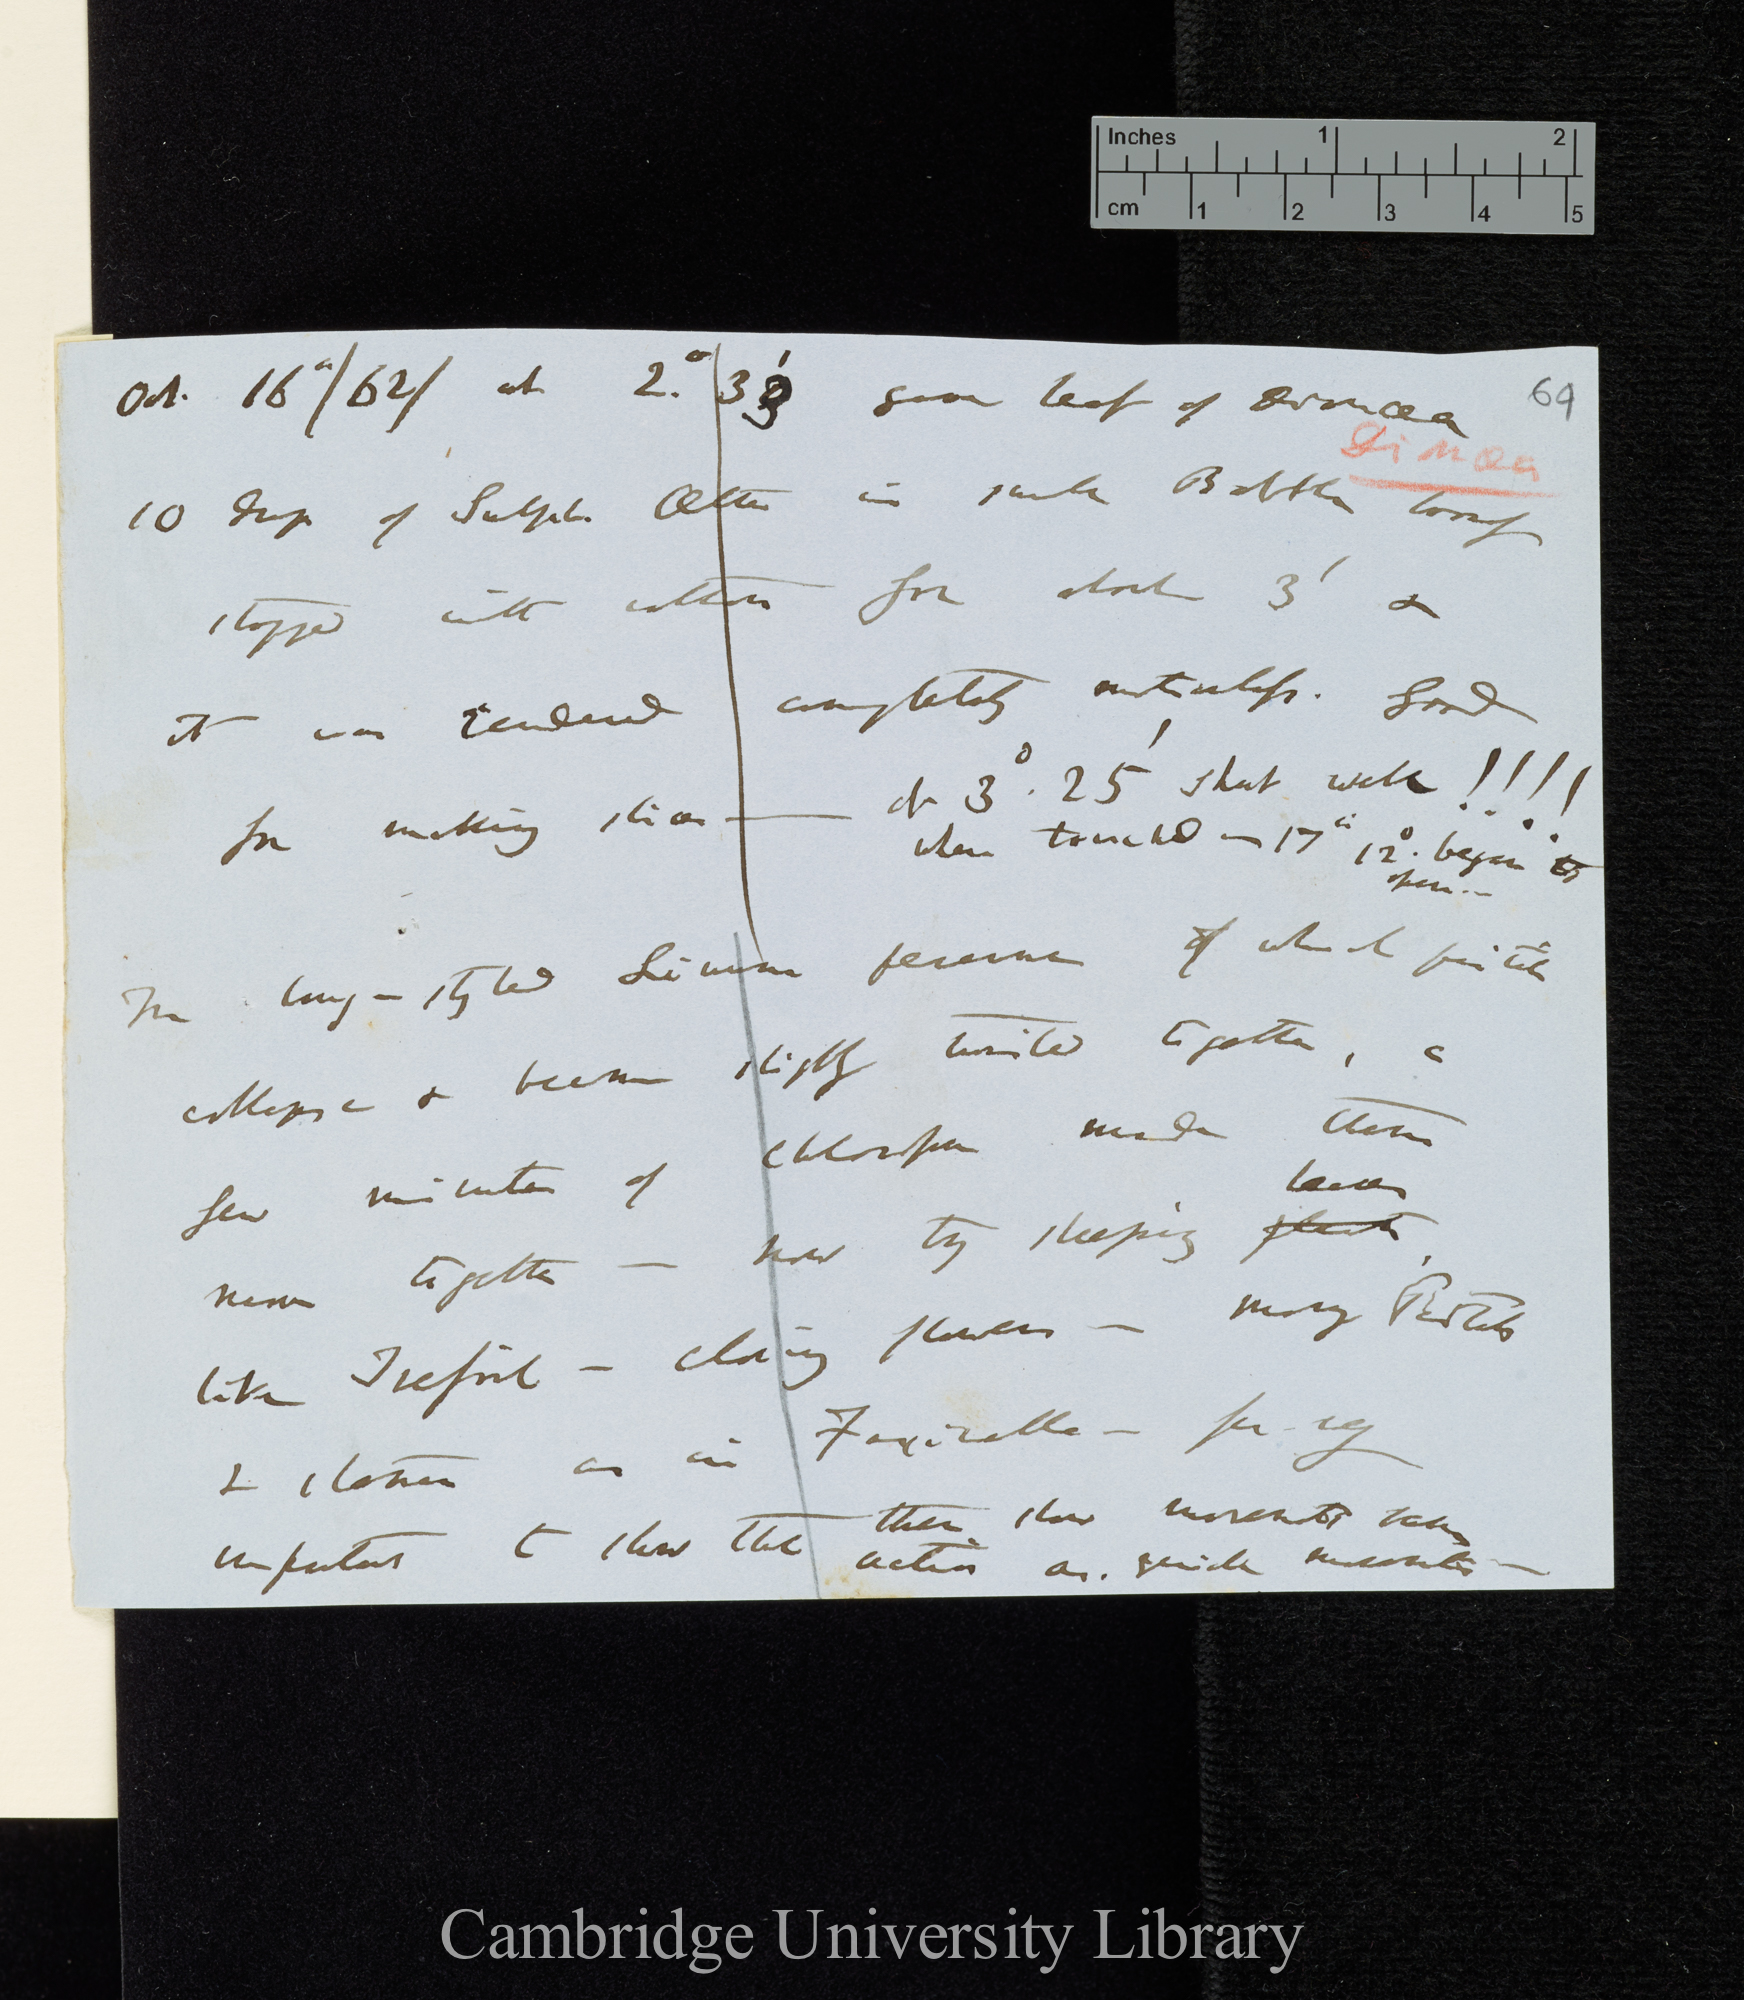 Inches 1 2
cm 1 2 3 4 5
69
Oct. 16th/62/ at 2.° 33' gave leaf of Dionæa
Dionæa
10 drops of Sulph. Æther in Bottle
stopped with cotton for about 3' &
it was rendered completely motionless. Good
for making — at 3°. 25' shut well !!!!
when touched — 17th 12°. began to
open —
In long-styled Linum of which pistils
collapse & become slightly twisted together, a
few minutes of chloroform made them
move together — now try sleeping plants leaves,
like Trefoil — closing flowers — many Pistils
& stamens as in — for very
important to show that these slow movements
action as quick movements —
Cambridge University Library